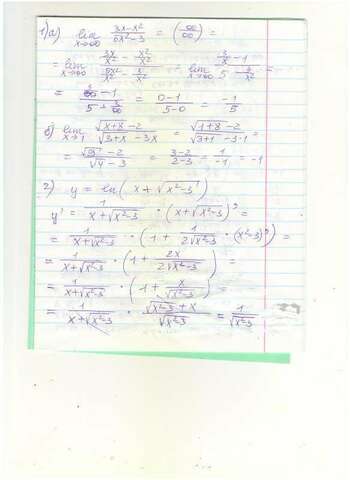 1) а) lim x→∞ (3x-x²)/(5x²-3) = (∞/∞) =
= lim x→∞ (3x/x² - x²/x²)/(5x²/x² - 3/x²) = lim x→∞ (3/x - 1)/(5 - 3/x²) =
= (3/∞ - 1)/(5 + 3/∞) = (0-1)/(5-0) = -1/5
б) lim x→1 (√(x+8) - 2)/(√(3+x) - 3x) = (√(1+8) - 2)/(√(3+1) - 3·1) =
= (√9 - 2)/(√4 - 3) = (3-2)/(2-3) = 1/-1 = -1
2) y = ln(x+√(x²-3))
y' = 1/(x+√(x²-3)) · (x+√(x²-3))' =
= 1/(x+√(x²-3)) · (1 + 1/(2√(x²-3)) · (x²-3)') =
= 1/(x+√(x²-3)) · (1 + 2x/(2√(x²-3))) =
= 1/(x+√(x²-3)) · (1 + x/√(x²-3)) =
= 1/(x+√(x²-3)) · (√(x²-3)+x)/√(x²-3) = 1/√(x²-3)